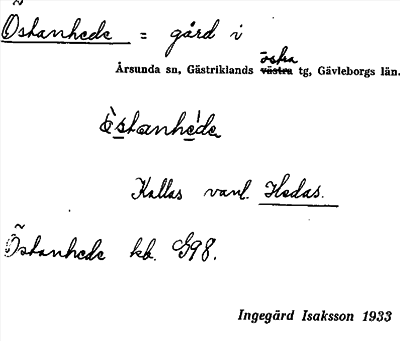 Östanhede = gård i
östra
Årsunda sn, Gästriklands västra tg, Gävleborgs län.
ɵ̀stanhéde
Kallas vanl. Hedas.
Östanhede kb. G98.
Ingegärd Isaksson 1933